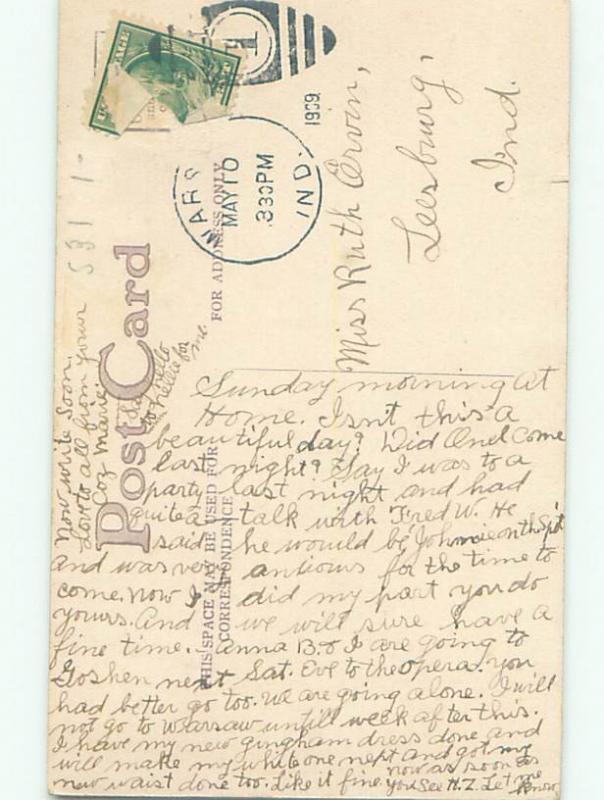 WARS
MAY 10
3 30 PM
IND.
1909
Post Card
THIS SPACE MAY BE USED FOR
CORRESPONDENCE
FOR ADDRESS ONLY
S31 1
Miss Ruth Ervin,
Leesburg,
Ind.
Sunday morning At
Home. Isn't this a
beautiful day? Did Orel come
last night? Say I was to a
party last night and had
quite a talk with Fred W. He
said he would be Johnnie on the Spot
and was very antious for the time to
come. Now I did my part you do
yours. And we will sure have a
fine time. Anna B. & I are going to
Goshen next Sat. Eve to the opera. You
had better go too. We are going alone. I will
not go to Warsaw untill week after this.
I have my new gingham dress done and
will make my white one next and got my
new waist done too. Like it fine. You See H.Z. Let me
know as soon as
know
Now write Soon.
Love to all from your
Coz Marie.
Say hello
to Nellie for
me.